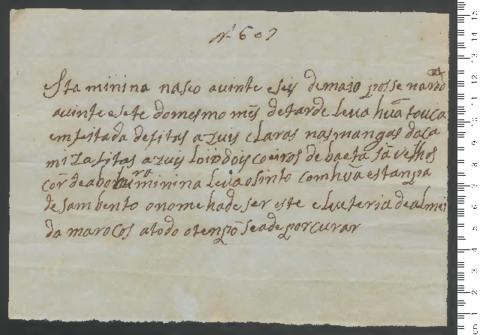 Nº 607
Esta minina nasceo avinte eseis demaio posse naroda
avinte esete domesmo mes detarde leva huã touca
emfeitada defitas azuis claras nasmangas daca
miza fitas azuis dois coeiros debaeta já velhos
cor deabobra minina leva osinto com huã estanpa
de sambento onome hade ser este eleuteria dealmei
da marocos atodo otenpo seade porcurar